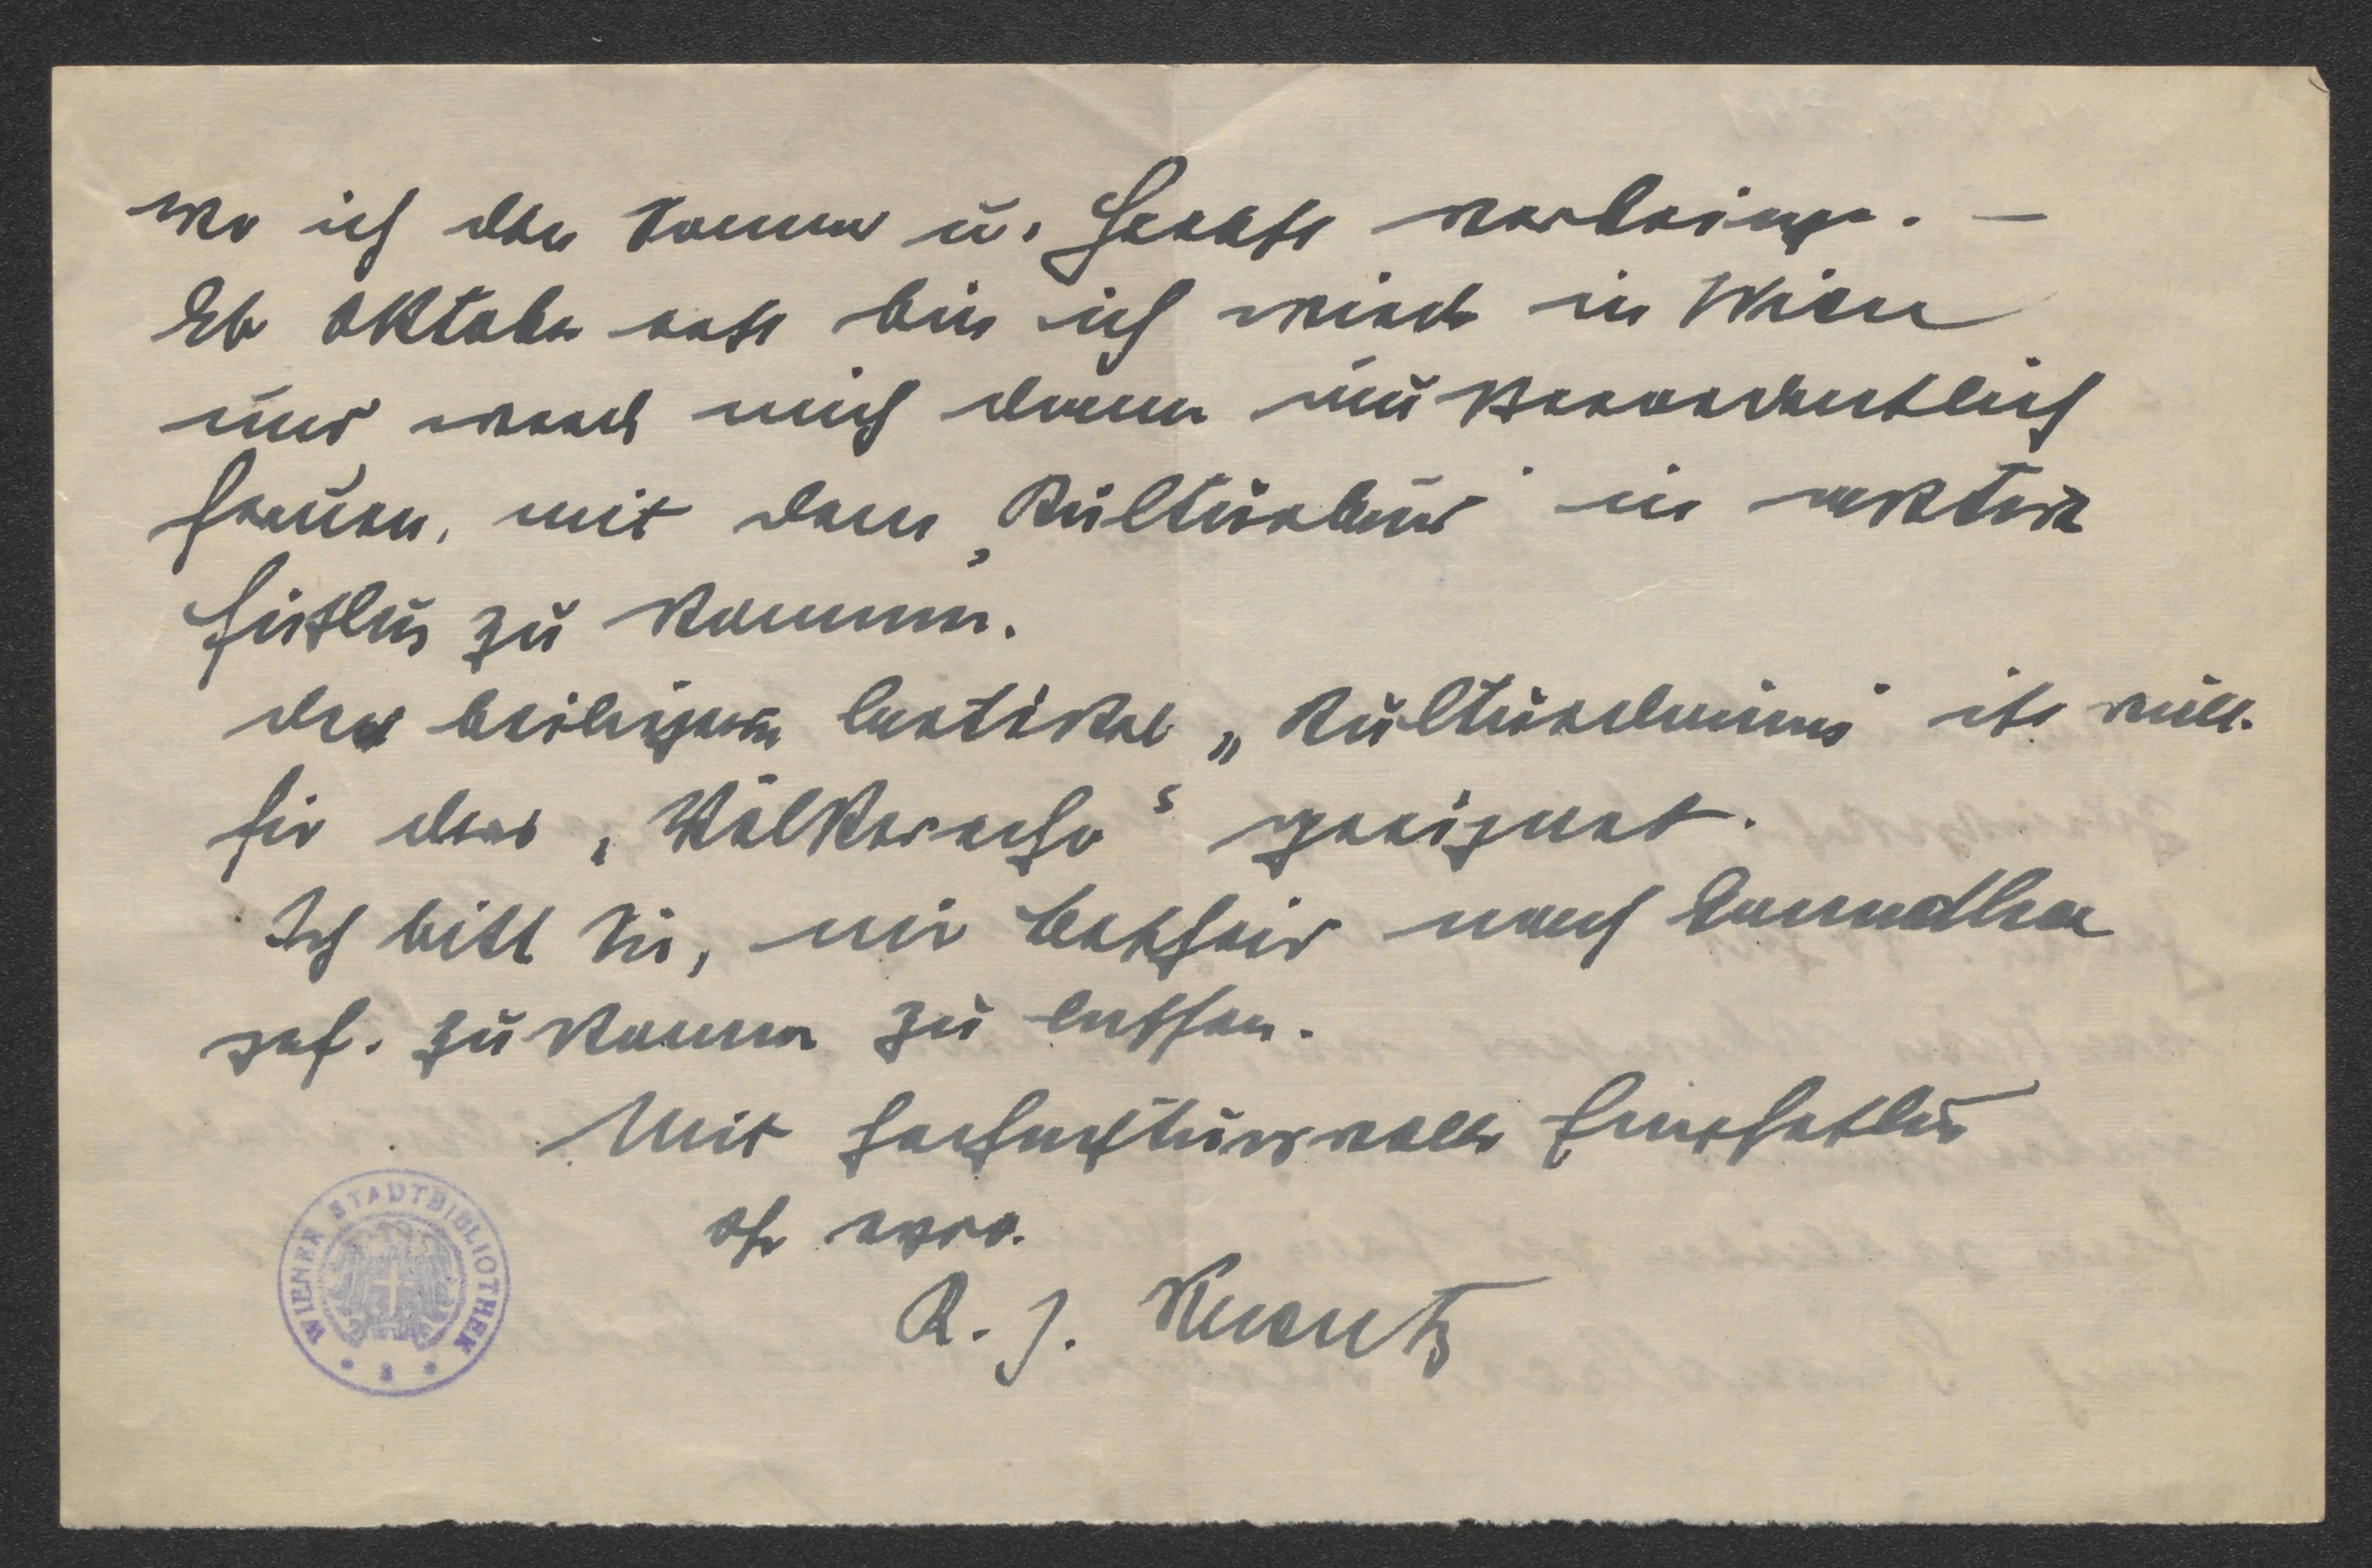 wo ich den Sommer u. Herbst verbringe. —
Ab Oktober erst bin ich wieder in Wien
und werde mich dann außerordentlich
freuen, mit dem „Kulturbund" in aktive
Fühlung zu kommen.
Der beiliegende Artikel „Kultur" ist viell.
für das „Völkerecho" geeignet.
Ich bitte Sie, mir Bescheid nach
gef. zukommen zu lassen.
Mit hochachtungsvoller Empfehlung
Ihr ergeb.
R. J. Kreutz
WIENER STADTBIBLIOTHEK